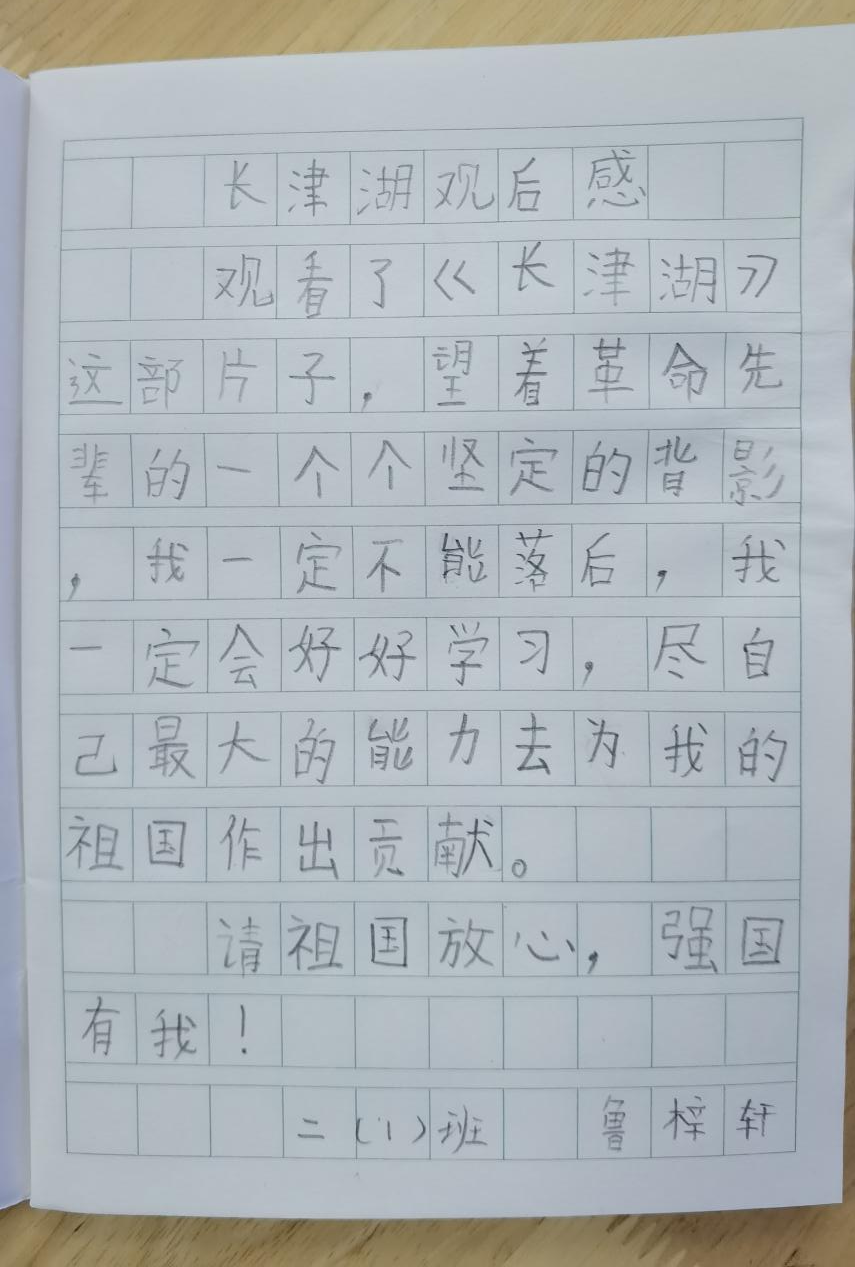 长津湖观后感
观看了《长津湖》
这部片子，望着革命先
辈的一个个坚定的背影
，我一定不能落后，我
一定会好好学习，尽自
己最大的能力去为我的
祖国作出贡献。
请祖国放心，强国
有我！
二（1）班 鲁梓轩